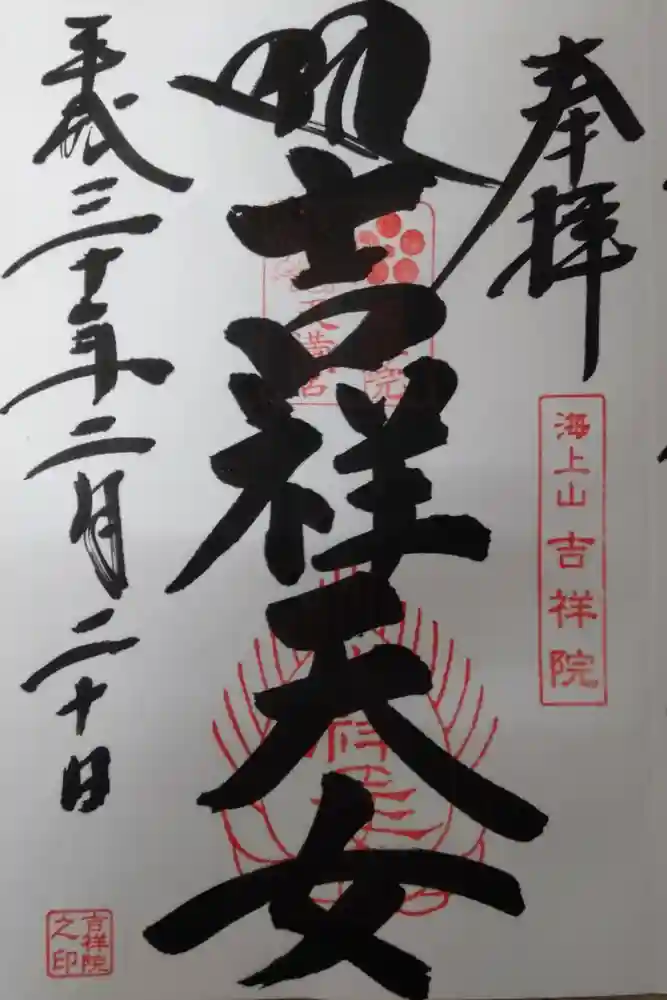 奉拝
海上山 吉祥院
吉祥天女
院
天満宮
平成三十年二月二十日
吉祥院
之印